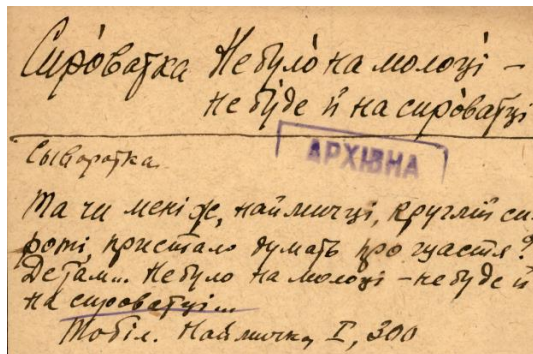 Сиро́ватка Не було́ на молоці́ –
не бу́де й на сиро́ватці
Сыворотка.
АРХІВНА
Та чи мені ж, наймичці, круглій си-
роті, пристало думать про щастя?
Де там... Не було на молоці – не буде й
на сироватці...
Тобіл. Наймичка, I, 300